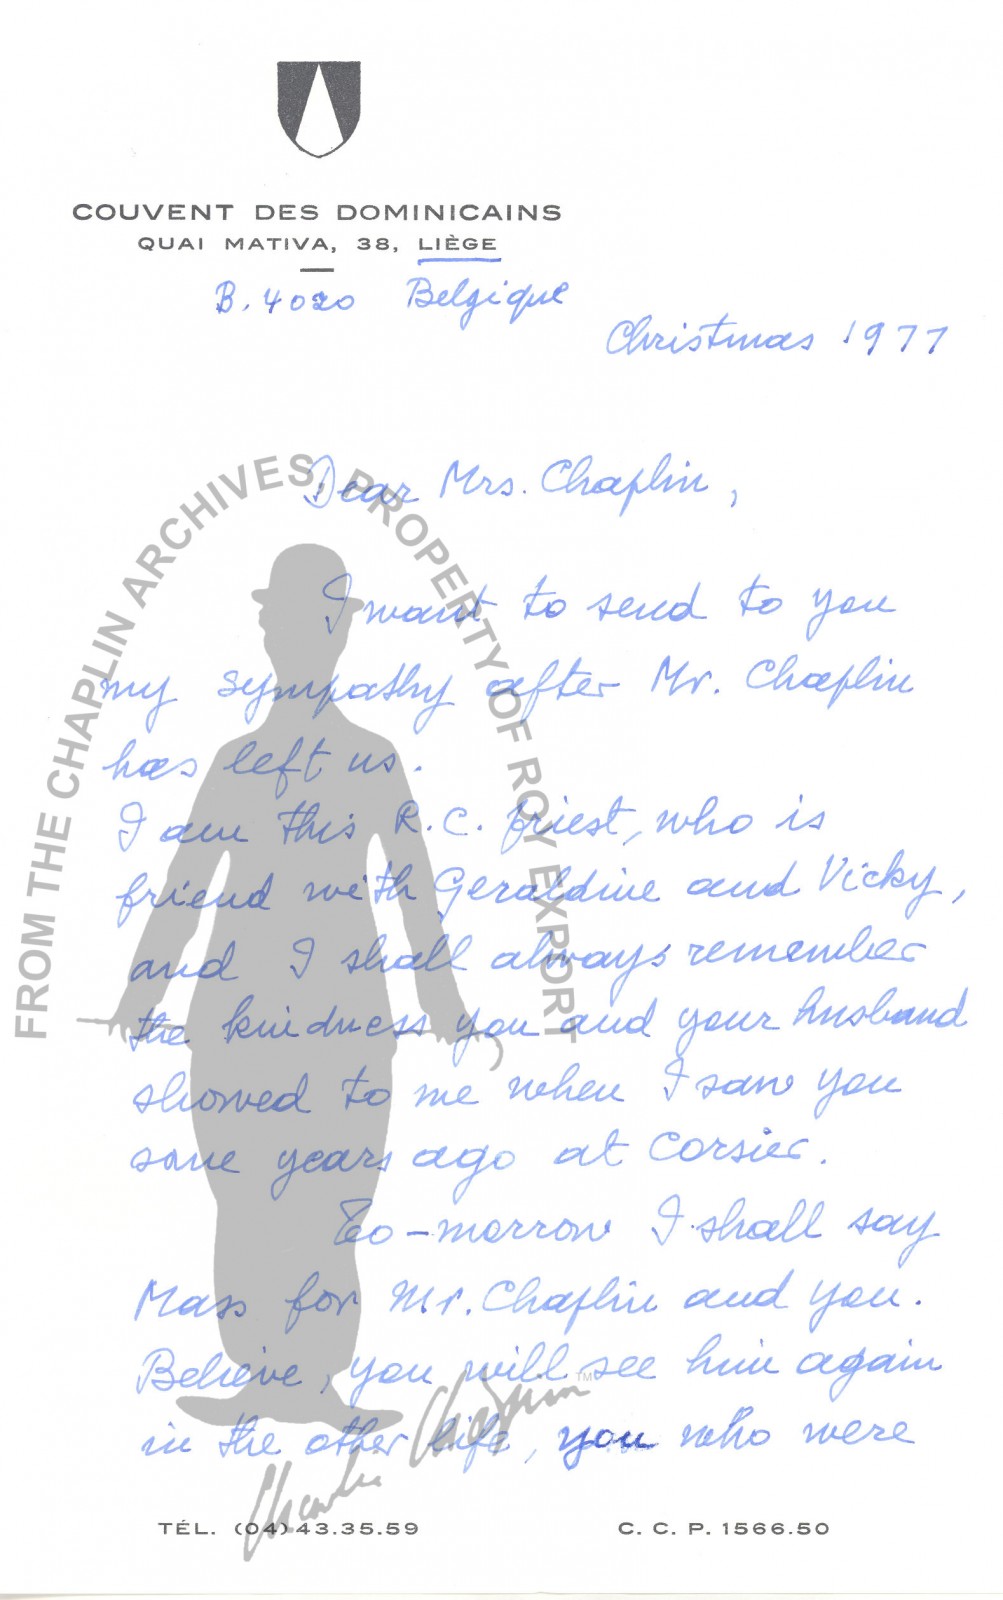 COUVENT DES DOMINICAINS
QUAI MATIVA, 38, LIÈGE
B. 4020 Belgique
Christmas 1977
Dear Mrs. Chaplin,
I want to send to you
my sympathy after Mr. Chaplin
has left us.
I am this R.C. priest, who is
friend with Geraldine and Vicky,
and I shall always remember
the kindness you and your husband
showed to me when I saw you
some years ago at Corsier.
To-morrow I shall say
Mass for Mr. Chaplin and you.
Believe, you will see him again
in the other life, you who were
TÉL. (04) 43.35.59
C. C. P. 1566.50
FROM THE CHAPLIN ARCHIVES, PROPERTY OF ROY EXPORT
Charlie Chaplin TM